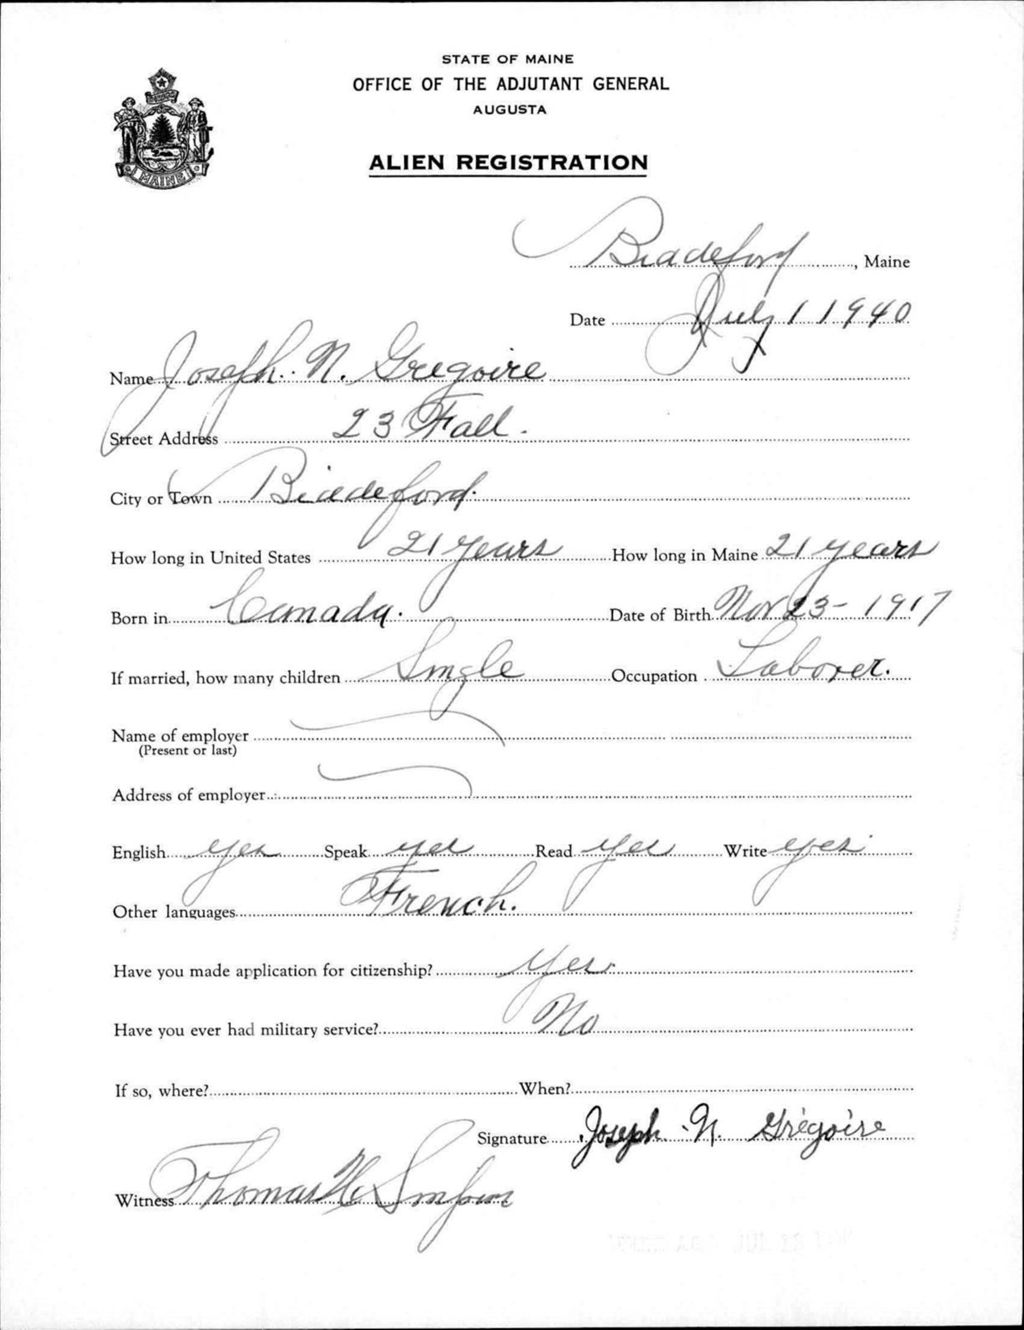 STATE OF MAINE
OFFICE OF THE ADJUTANT GENERAL
AUGUSTA
MAINE
ALIEN REGISTRATION
Biddeford, Maine
Date July 1 1940
Name Joseph. N. Gregoire
Street Address 23 Fall.
City or Town Biddeford.
How long in United States 21 years How long in Maine 21 years
Born in Canada. Date of Birth Nov 23 - 1917
If married, how many children Single Occupation Laborer.
Name of employer
(Present or last)
Address of employer
English yes Speak yes Read yes Write yes
Other languages French.
Have you made application for citizenship? Yes
Have you ever had military service? No
If so, where? When?
Signature Joseph N. Grégoire
Witness Thomas
JUL 13